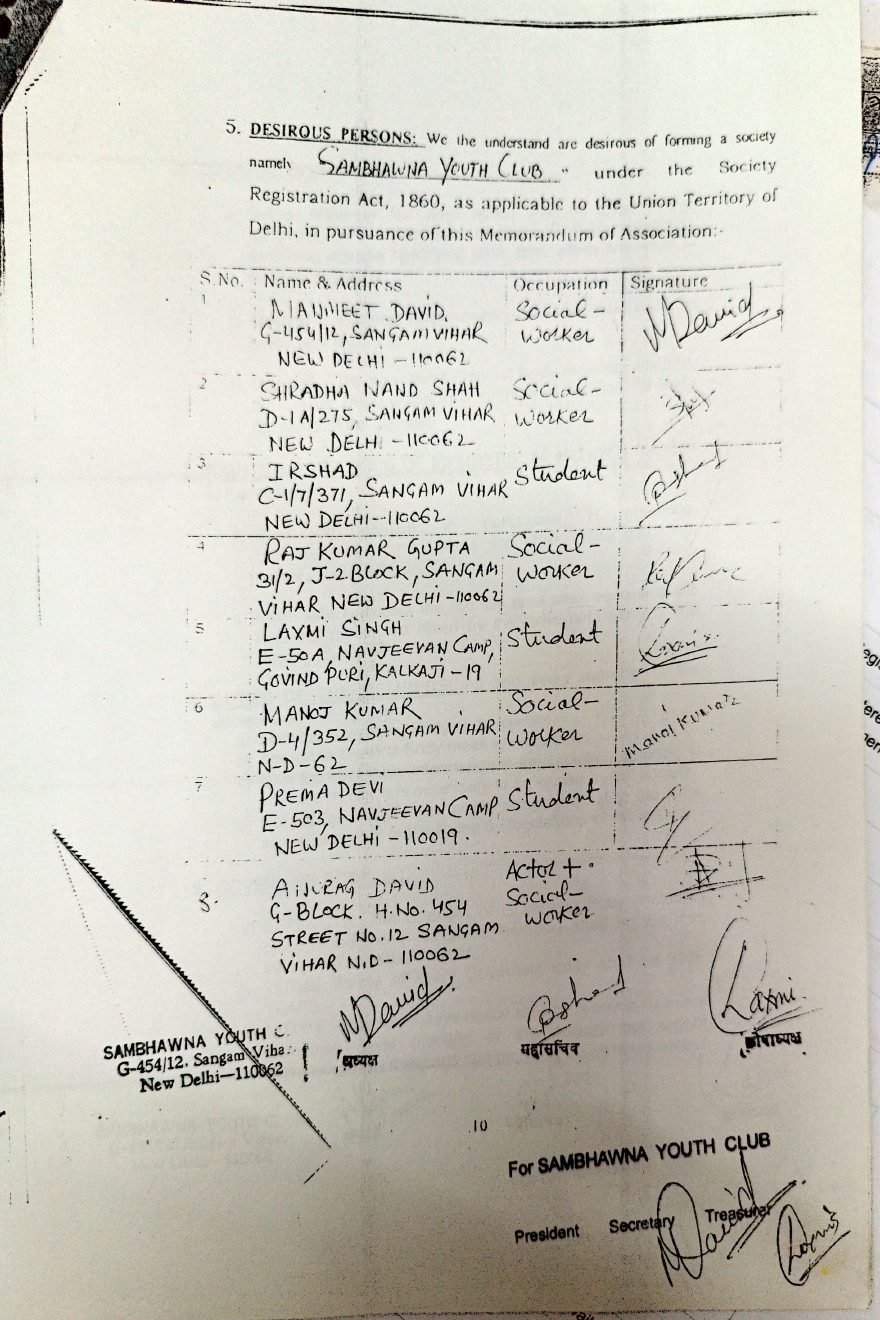 5. DESIROUS PERSONS: We the understand are desirous of forming a society
namely SAMBHAWNA YOUTH CLUB " under the Society
Registration Act, 1860, as applicable to the Union Territory of
Delhi, in pursuance of this Memorandum of Association:-
S.No. Name & Address Occupation Signature
1 MANMEET DAVID, Social- MDavid
G-454/12, SANGAM VIHAR Worker
NEW DELHI -110062
2 SHRADHA NAND SHAH Social-
D-1A/275, SANGAM VIHAR Worker
NEW DELHI -110062
3 IRSHAD Student
C-1/7/371, SANGAM VIHAR
NEW DELHI-110062
4 RAJ KUMAR GUPTA Social-
31/2, J-2 BLOCK, SANGAM Worker
VIHAR NEW DELHI -110062
5 LAXMI SINGH Student Laxmi
E-50A, NAVJEEVAN CAMP,
GOVIND PURI, KALKAJI -19
6 MANOJ KUMAR Social- Manoj Kumar
D-4/352, SANGAM VIHAR Worker
N-D-62
7 PREMA DEVI Student
E-503, NAVJEEVAN CAMP
NEW DELHI -110019.
8. ANURAG DAVID Actor +
G-BLOCK. H.No. 454 Social-
STREET NO.12 SANGAM Worker
VIHAR N.D- 110062
MDavid Laxmi
SAMBHAWNA YOUTH C.
G-454/12, Sangam Viha
New Delhi—110062
अध्यक्ष महासचिव कोषाध्यक्ष
10
For SAMBHAWNA YOUTH CLUB
President Secretary Treasurer
MDavid Laxmi